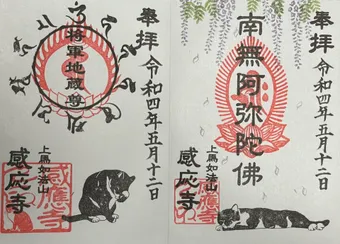 奉拝
令和四年五月十二日
南無阿弥陀佛
上馬如法山
感応寺
奉拝
令和四年五月十二日
将軍地蔵尊
上馬如法山
感応寺
感應寺